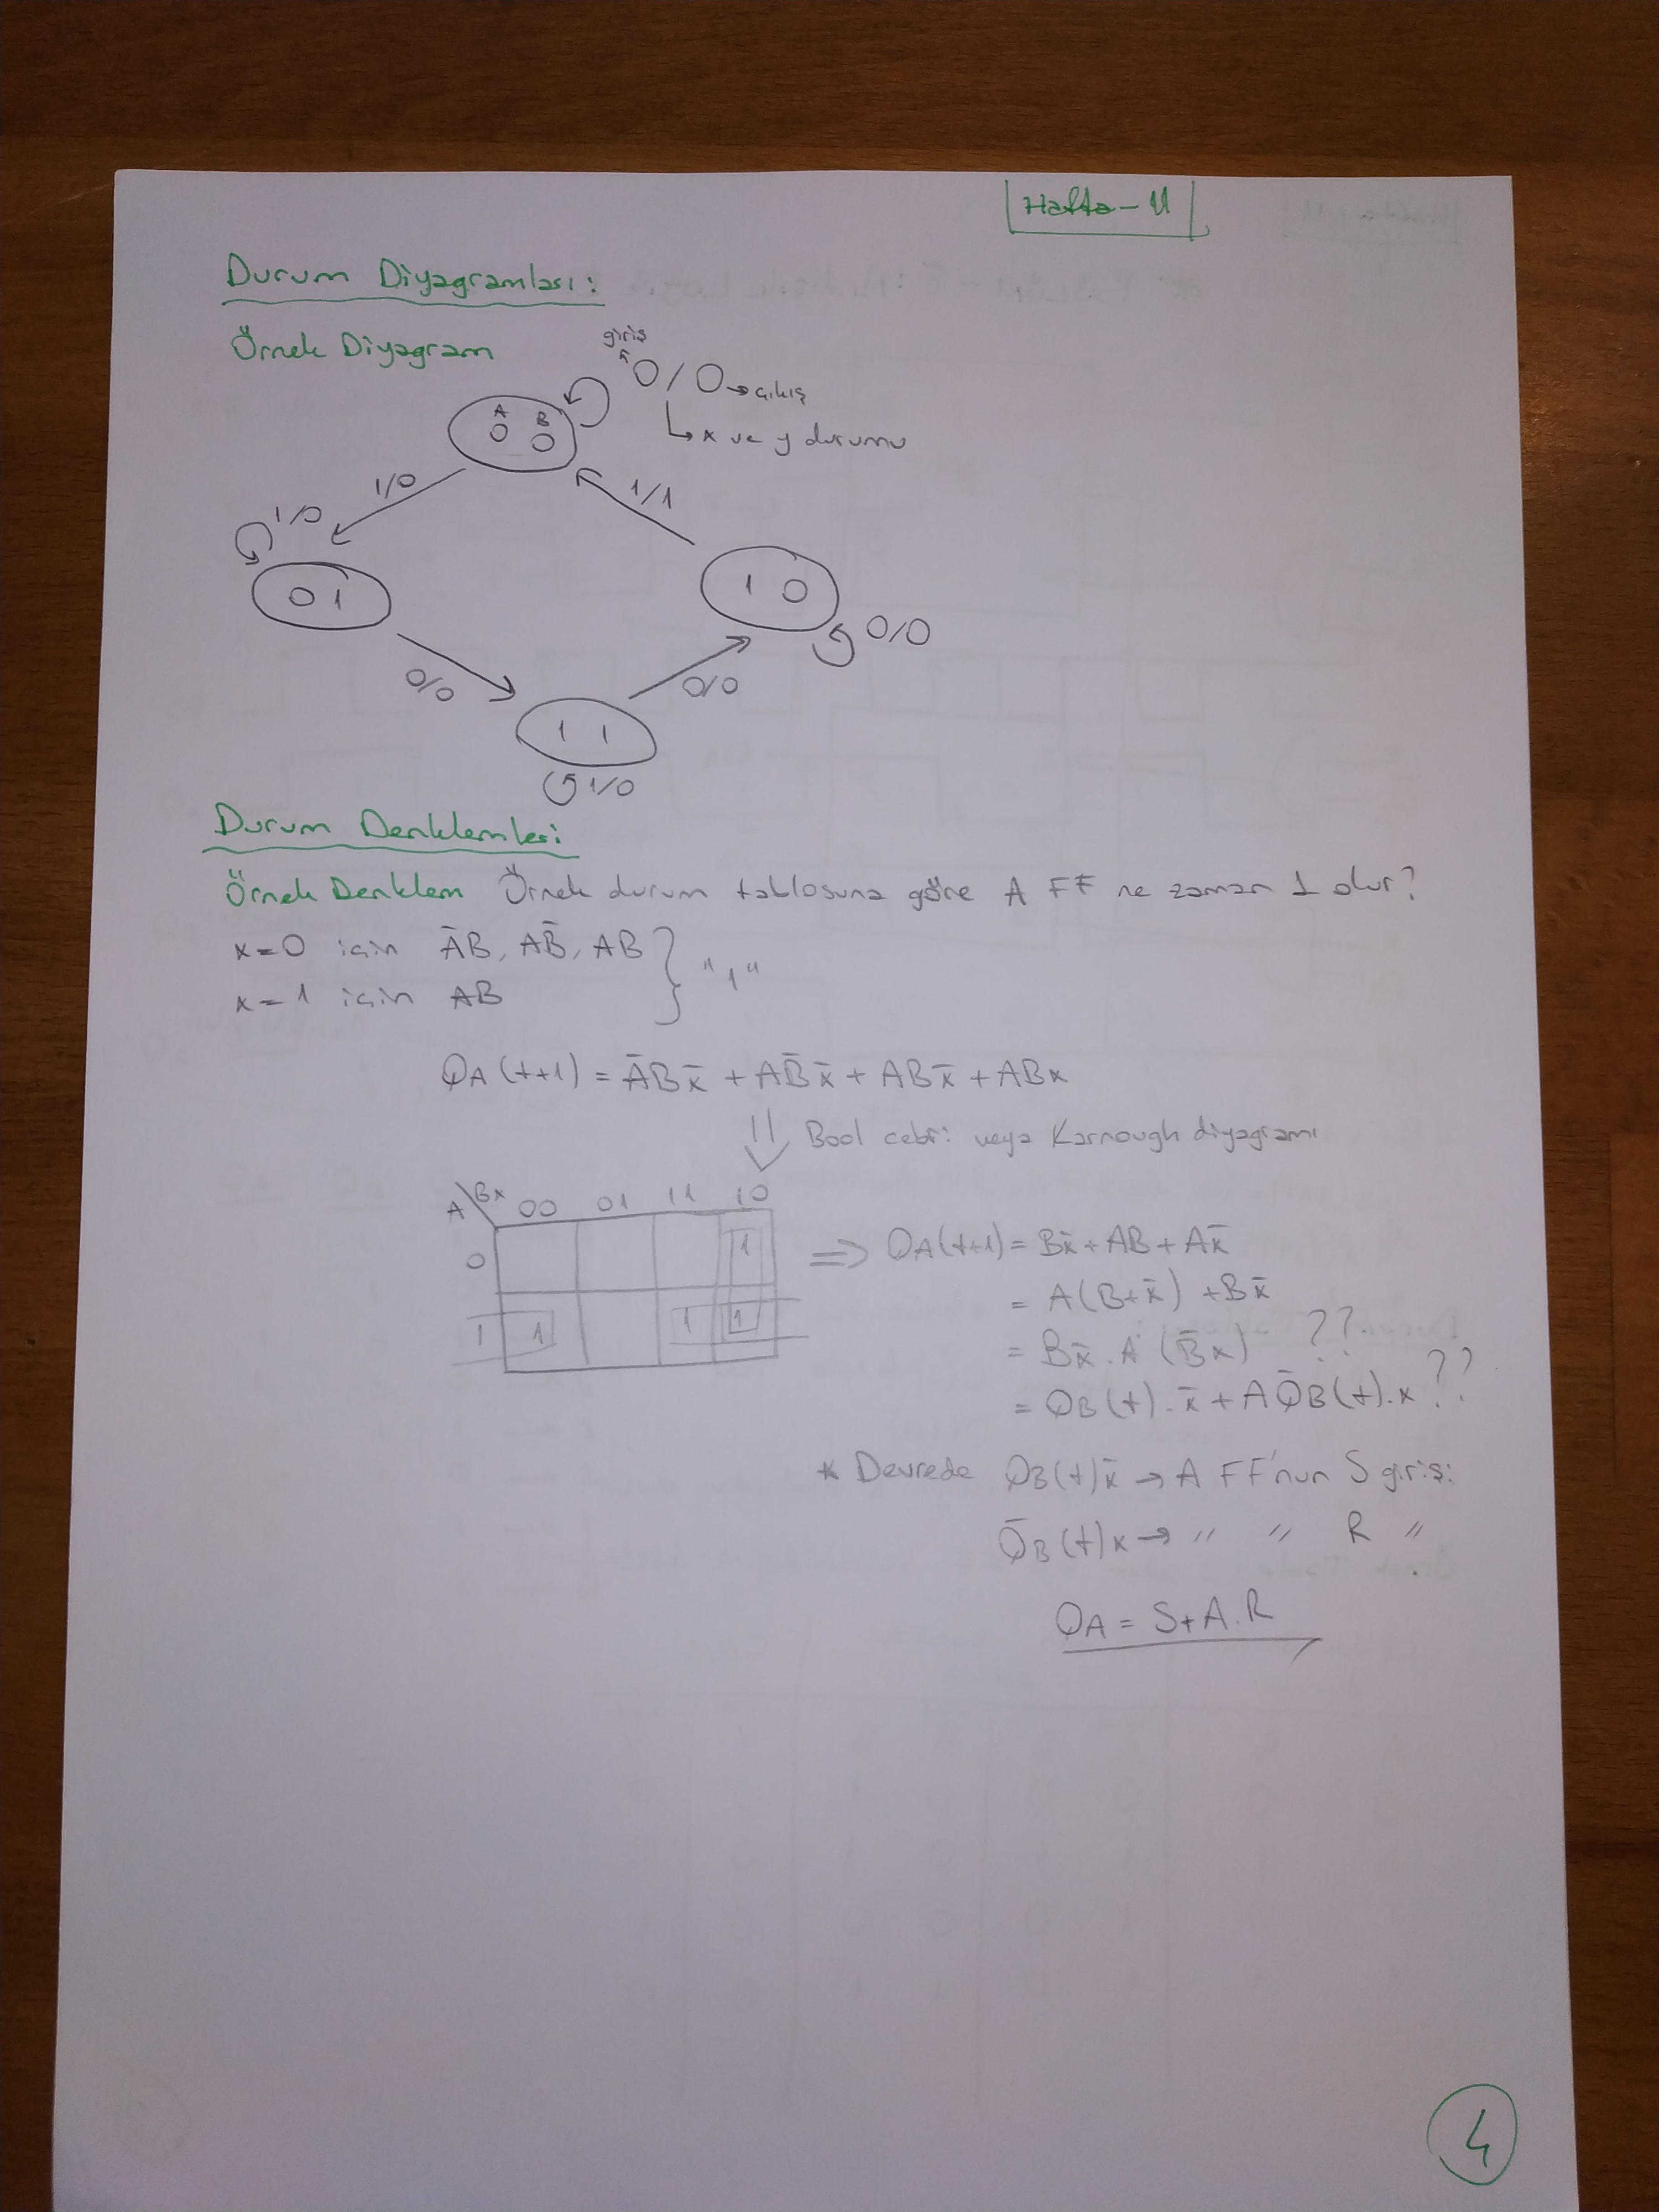 Hafta-11
Durum Diyagramları:
Örnek Diyagram
giriş
0/0 → çıkış
↳ x ve y durumu
A B
0 0
1/0
1/1
1/0
0 1
1 0
0/0
0/0
0/0
1 1
1/0
Durum Denklemleri:
Örnek Denklem Örnek durum tablosuna göre A FF ne zaman 1 olur?
x=0 için A̅B, AB̅, AB } "1"
x=1 için AB
QA(t+1) = A̅Bx̅ + AB̅x̅ + ABx̅ + ABx
⇓ Bool cebri veya Karnough diyagramı
A\Bx 00 01 11 10
0 1
1 1 1 1
⇒ QA(t+1) = Bx̅ + AB + Ax̅
= A(B+x̅) + Bx̅
= Bx̅. A. (B̅x) ??
= QB(t).x̅ + AQ̅B(t).x ??
* Devrede QB(t)x̅ → A FF'nun S girişi
Q̅B(t)x → " " R "
QA = S+A.R
4